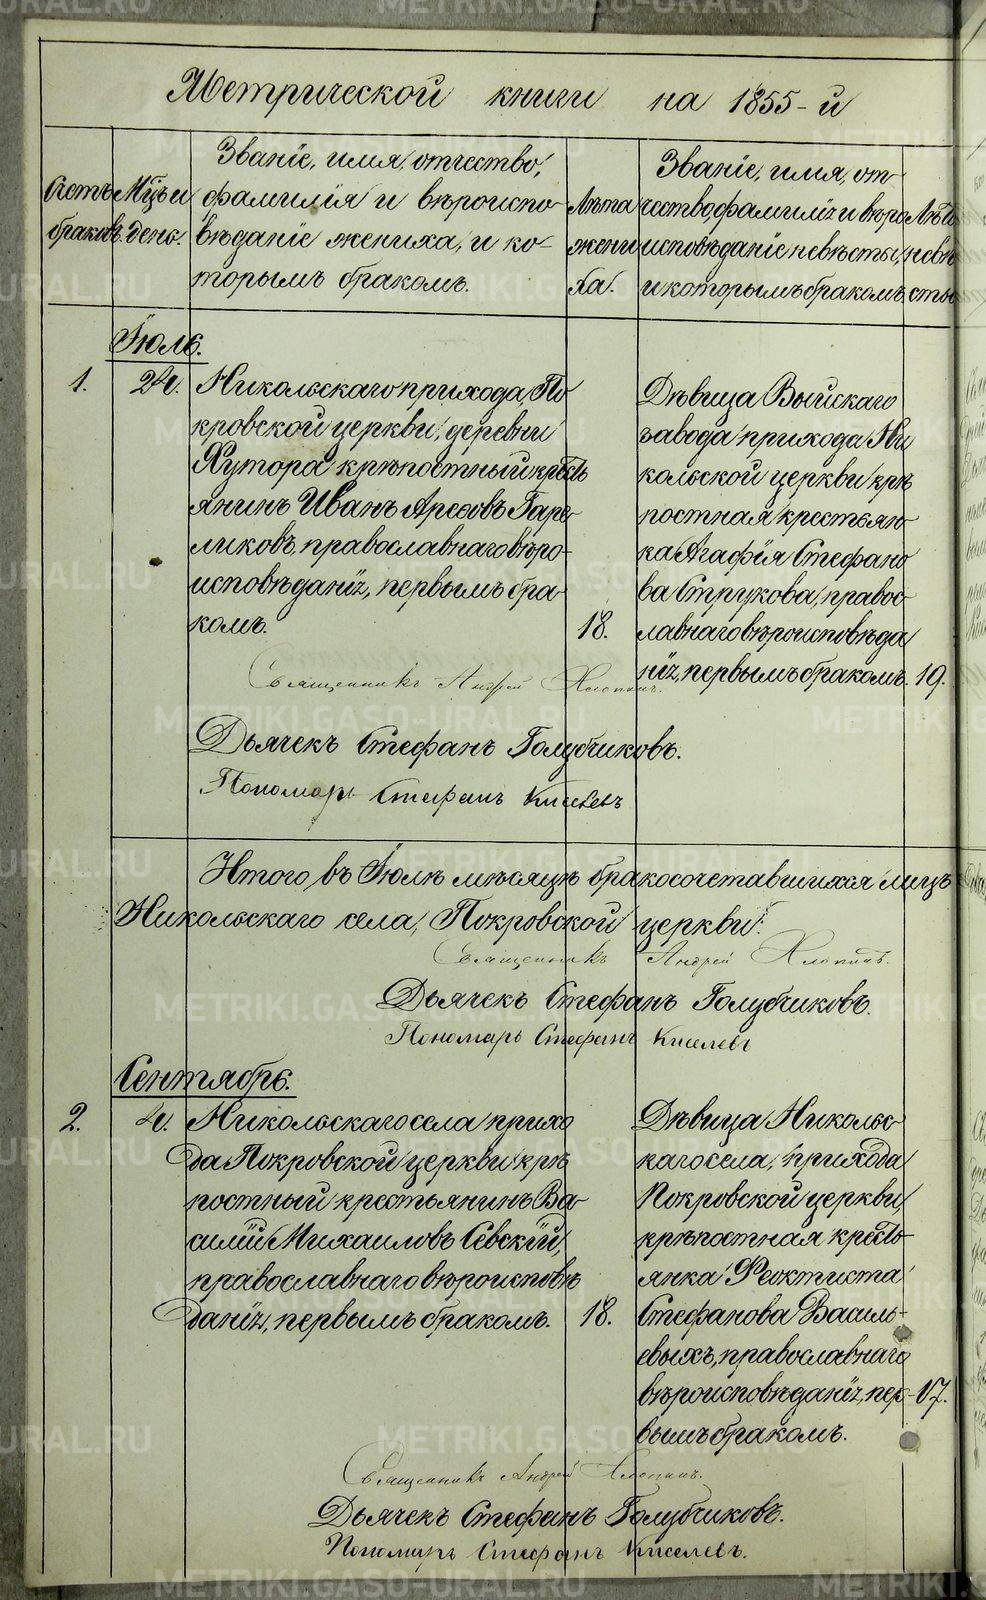 Метрической книги на 1855-й
Счетъ браковъ.
Мѣсяцъ и день.
Званіе, имя, отчество,
фамилія и вѣроиспо-
вѣданіе жениха, и ко-
торымъ бракомъ.
Лѣта
жени
ха.
Званіе, имя, от-
чество, фамилія и вѣро
исповѣданіе невѣсты,
и которымъ бракомъ.
Лѣта
невѣ
сты
Іюль.
1.
24.
Никольскаго прихода, По
кровской церкви, деревни
Хутора крѣпостный кресть
янинъ Иванъ
ликовъ, православнаго вѣро-
исповѣданія, первымъ бра-
комъ.
18.
Дѣвица Выйскаго
завода прихода Ни
кольской церкви крѣ
постная крестьян-
ка Агафія Стефано
ва Струкова, правос-
лавнаго вѣроисповѣда
нія, первымъ бракомъ.
19.
Священникъ Андрей Хлопинъ.
Дьячекъ Стефанъ Голубчиковъ.
Пономарь Стефанъ Киселевъ
Итого въ Іюлѣ мѣсяцѣ бракосочетавшихся лицъ
Никольскаго села, Покровской церкви:
Священникъ Андрей Хлопинъ.
Дьячекъ Стефанъ Голубчиковъ.
Пономарь Стефанъ Киселевъ
Сентябрь.
2.
4.
Никольскаго села прихо
да Покровской церкви крѣ
постный крестьянинъ Ва-
силій Михаиловъ Севскій,
православнаго вѣроисповѣ
данія, первымъ бракомъ.
18.
Дѣвица Никольс-
каго села, прихода
Покровской церкви,
крѣпостная кресть-
янка Феоктиста
Стефанова Василь-
евыхъ, православнаго
вѣроисповѣданія, пер-
вымъ бракомъ.
17.
Священникъ Андрей Хлопинъ.
Дьячекъ Стефанъ Голубчиковъ.
Пономарь Стефанъ Киселевъ.
METRIKI.GASO-URAL.RU